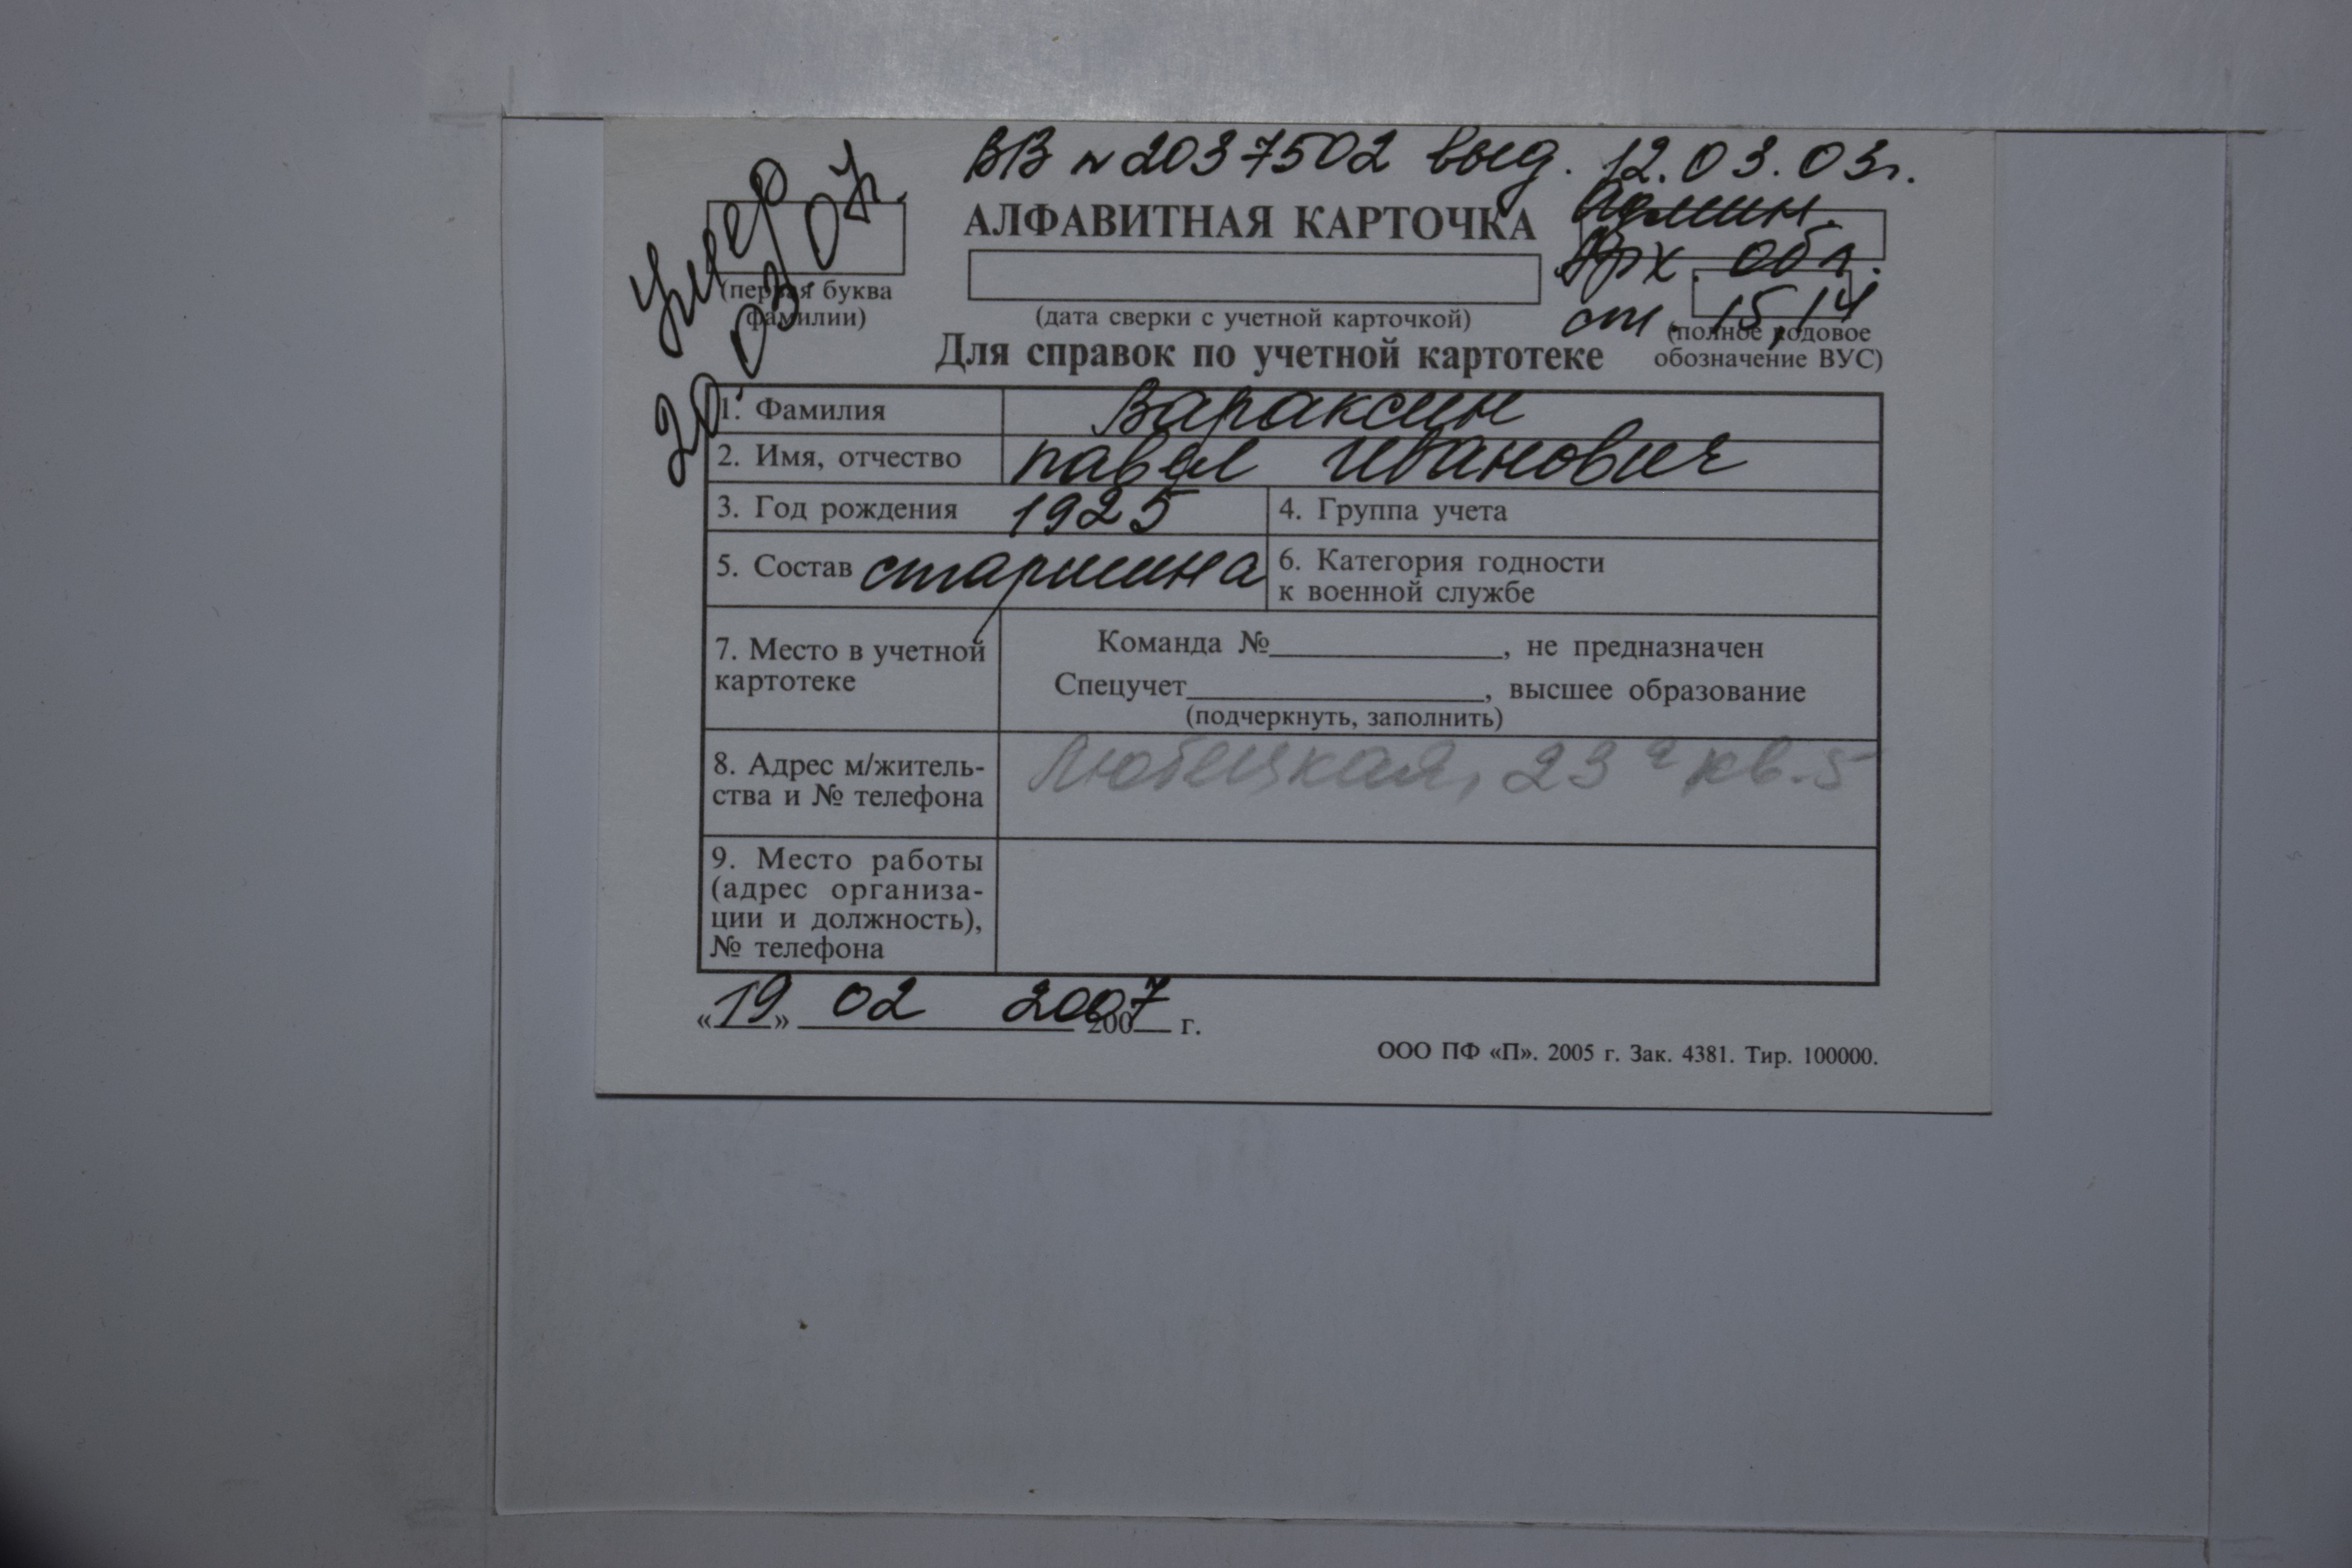 ВВ № 2037502 выд. 12.03.03г.
Админ.
Арх. обл.
ст. 15,14
умер
20.03.07г.
АЛФАВИТНАЯ КАРТОЧКА
(первая буква
фамилии)
(дата сверки с учетной карточкой)
(полное кодовое
обозначение ВУС)
Для справок по учетной картотеке
1. Фамилия Вараксин
2. Имя, отчество Павел Иванович
3. Год рождения 1925 4. Группа учета
5. Состав старшина 6. Категория годности
к военной службе
7. Место в учетной
картотеке
Команда №____________, не предназначен
Спецучет_______________, высшее образование
(подчеркнуть, заполнить)
8. Адрес м/житель-
ства и № телефона
Любецкая, 23а кв. 5
9. Место работы
(адрес организа-
ции и должность),
№ телефона
«19» 02 2007 200__ г.
ООО ПФ «П». 2005 г. Зак. 4381. Тир. 100000.